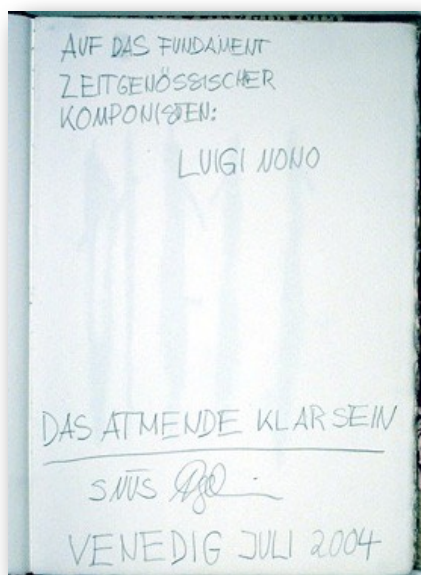 AUF DAS FUNDAMENT
ZEITGENÖSSISCHER
KOMPONISTEN:
LUIGI NONO
DAS ATMENDE KLARSEIN
VENEDIG JULI 2004